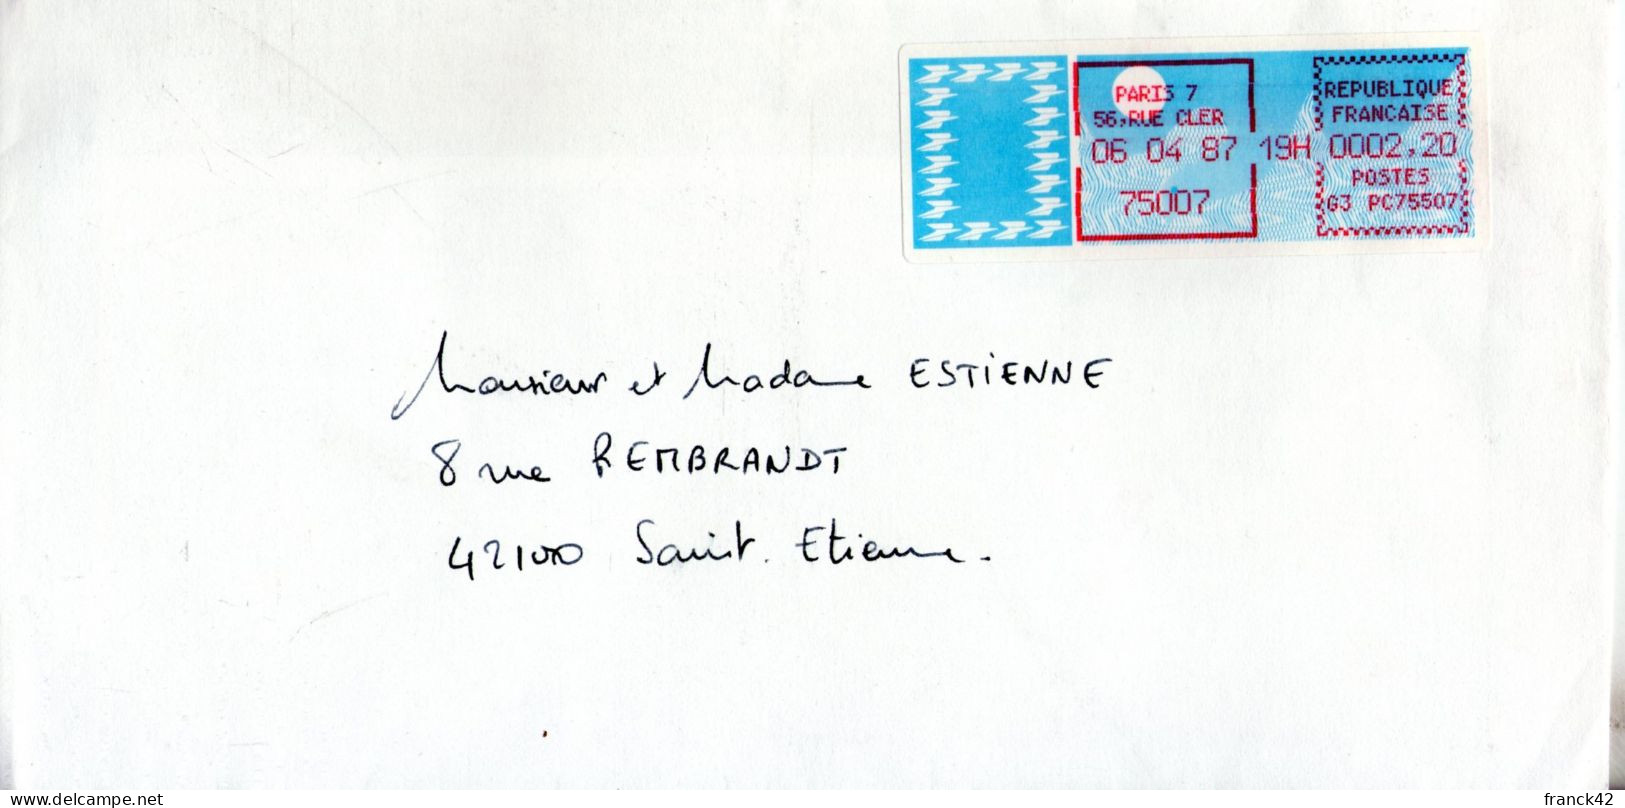 PARIS 7
56,RUE CLER
06 04 87 19H
75007
REPUBLIQUE
FRANCAISE
0002,20
POSTES
G3 PC75507
Monsieur et Madame ESTIENNE
8 rue REMBRANDT
42100 Saint. Etienne.
delcampe.net
franck42